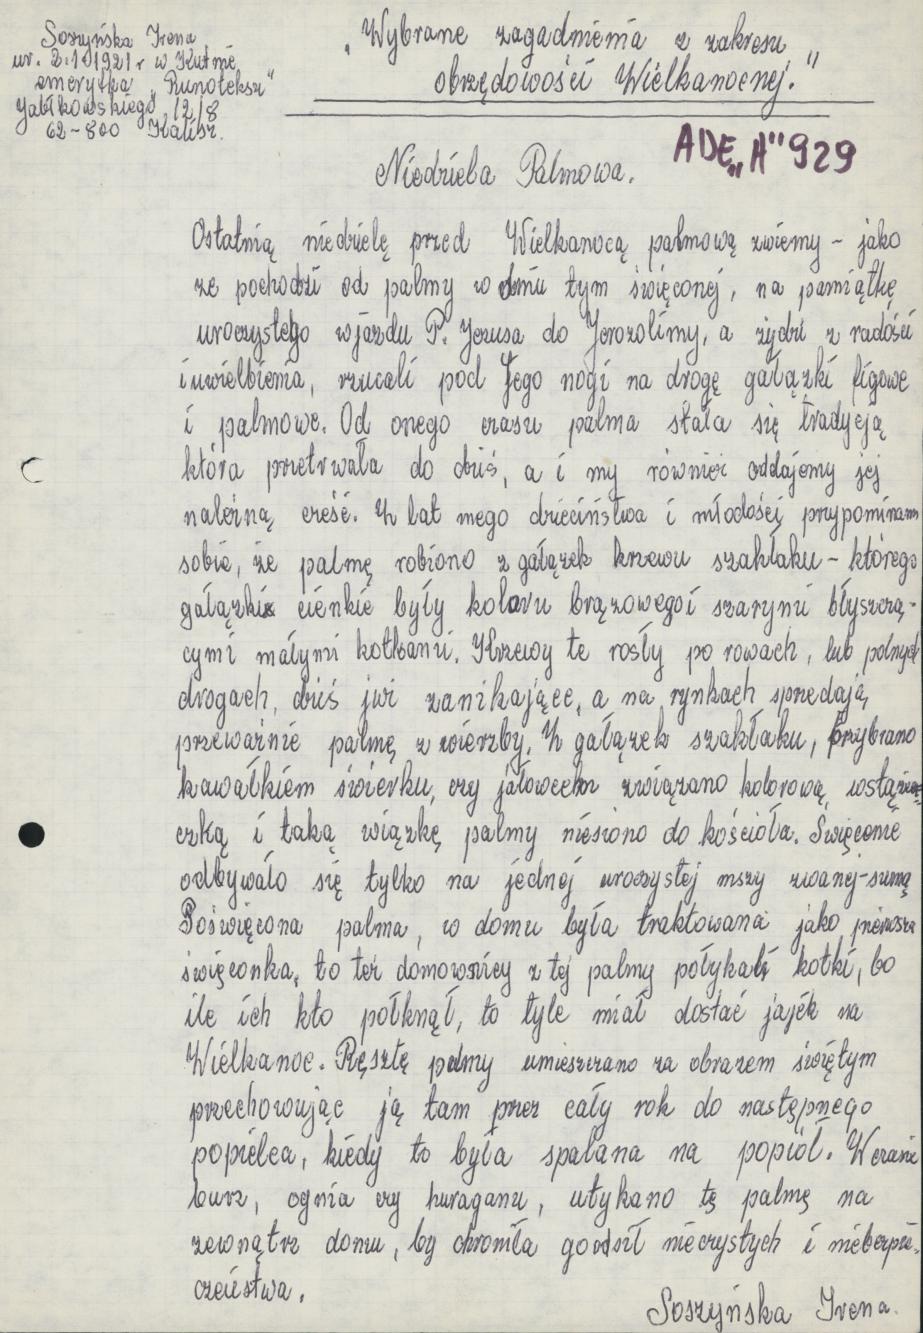 Soszyńska Irena
ur. 2.10 1921 r w Kutnie
emerytka "Runoteksu"
Jabłkowskiego 12/8
62-800 Kalisz.
„Wybrane zagadnienia z zakresu
obrzędowości Wielkanocnej."
ADE „A" 929
Niedziela Palmowa.
Ostatnią niedzielę przed Wielkanocą palmową zwiemy - jako
że pochodzi od palmy w dniu tym święconej, na pamiątkę
uroczystego wjazdu P. Jezusa do Jerozolimy, a żydzi z radości
i uwielbienia, rzucali pod Jego nogi na drogę gałązki figowe
i palmowe. Od onego czasu palma stała się tradycją
która przetrwała do dziś, a i my również oddajemy jej
należną cześć. Z lat mego dzieciństwa i młodości przypominam
sobie, że palmę robiono z gałązek krzewu szakłaku - którego
gałązki cienkie były koloru brązowego i szarymi błyszczą-
cymi małymi kotkami. Krzewy te rosły po rowach, lub polnych
drogach, dziś już zanikające, a na rynkach sprzedają
przeważnie palmę z wierzby. Z gałązek szakłaku, przybrano
kawałkiem świerku, czy jałowcem związano kolorową wstążecz-
czką i taką wiązkę palmy niesiono do kościoła. Święcenie
odbywało się tylko na jednej uroczystej mszy zwanej-sumą
Poświęcona palma, w domu była traktowana jako pierwsza
święconka, to też domownicy z tej palmy połykali kotki, bo
ile ich kto połknął, to tyle miał dostać jajek na
Wielkanoc. Resztę palmy umieszczano za obrazem świętym
przechowując ją tam przez cały rok do następnego
popielca, kiedy to była spalana na popiół. W czasie
burz, ognia czy huraganu, utykano tę palmę na
zewnątrz domu, by chroniła go od sił nieczystych i niebezpie-
czeństwa.
Soszyńska Irena.